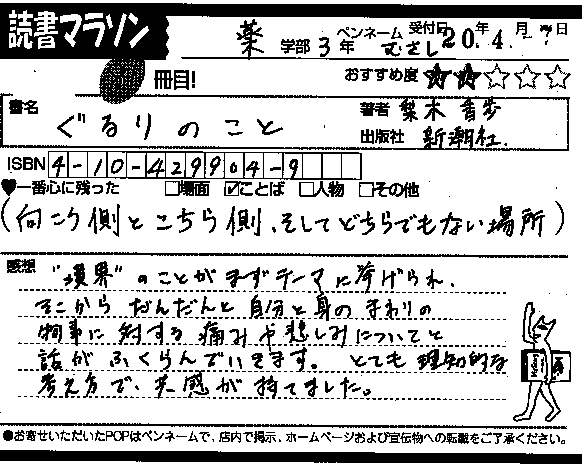 読書マラソン
薬 学部 3 年 ペンネーム むさし 受付日 20年 4月 7日
冊目! おすすめ度 ★★☆☆☆
書名 ぐるりのこと 著者 梨木香歩
出版社 新潮社.
ISBN 4-10-429904-9
♥一番心に残った □場面 ☑ことば □人物 □その他
(向こう側とこちら側、そしてどちらでもない場所)
感想 "境界"のことがまずテーマに挙げられ、
そこから だんだんと 自分と身のまわりの
物事に対する痛みや悲しみについてと
話がふくらんでいきます。とても理知的な
考え方で、共感が持てました。
●お寄せいただいたPOPはペンネームで、店内で掲示、ホームページおよび宣伝物への転載をご了承ください。